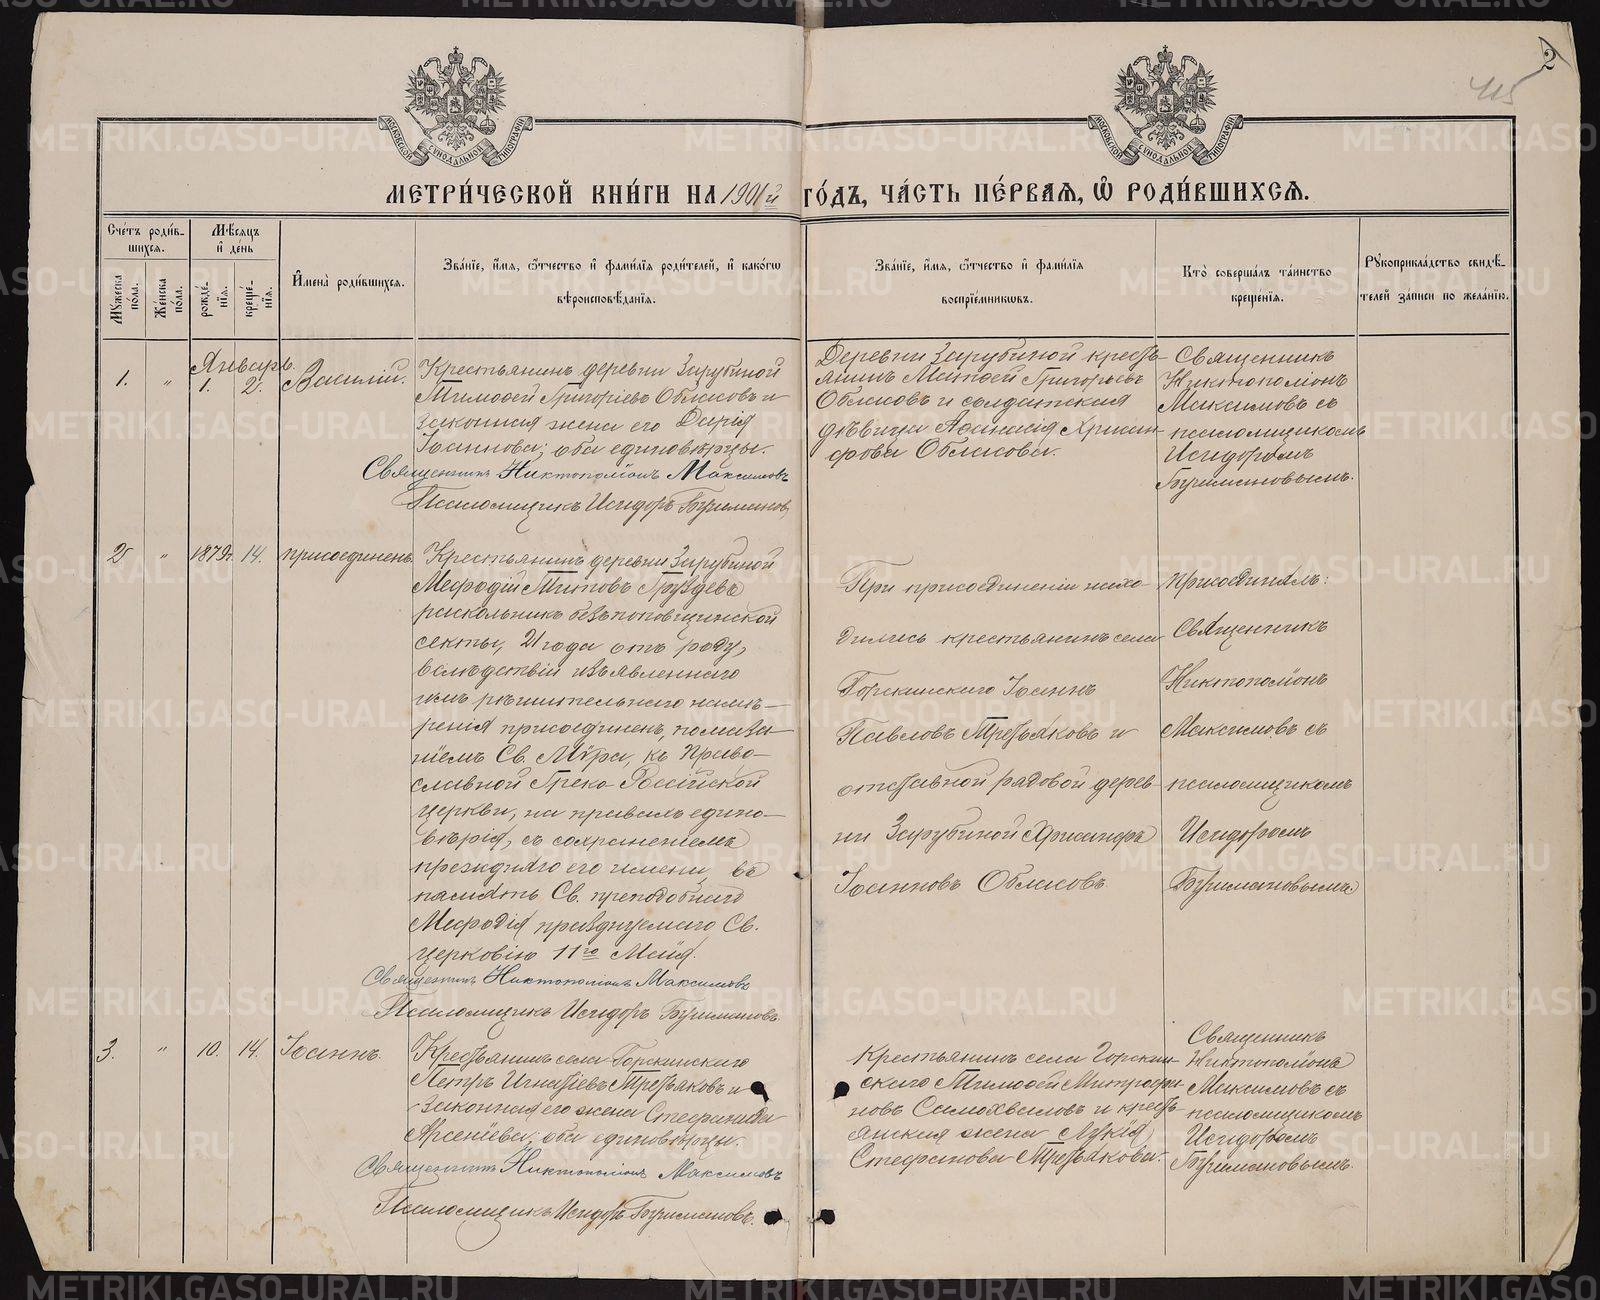 2
415
МОСКОВСКОЙ СѴНОДАЛЬНОЙ ТИПОГРАФІИ
МОСКОВСКОЙ СѴНОДАЛЬНОЙ ТИПОГРАФІИ
МЕТРИ́ЧЕСКОЙ КНИ́ГИ НА 1901й ГО́ДЪ, ЧА́СТЬ ПЕ́РВАЯ, Ѽ РОДИ́ВШИХСЯ.
Сче́тъ роди́в-
шихся.
Мꙋ́жеска по́ла.
Же́нска по́ла.
Мѣ́сяцъ
и̂ де́нь
рожде́-
нїя.
креще́-
нїя.
И̂мена̀ роди́вшихся.
Зва́нїе, и̂́мя, ѻ҆́тчество и̂ фами́лїя роди́телей, и̂ како́гѡ
вѣроисповѣ́данїя.
Зва́нїе, и̂́мя, ѻ҆́тчество и̂ фами́лїя
воспрїе́мникѡвъ.
Кто̀ соверша́лъ та́инство
креще́нїя.
Рꙋкоприкла́дство свидѣ́-
телей за́писи по жела́нїю.
Январь
1. " 1. 2. Василій.
Крестьянинъ деревни Зарубиной
Тимоѳей Григоріевъ Обласовъ и
законная жена его Дарія
Іоаннова; оба единовѣрцы.
Священникъ Никтополіонъ Максимовъ
Псаломщикъ Исидоръ
Деревни Зарубиной кресть-
янинъ Матѳей Григорьевъ
Обласовъ и солдатская
дѣвица Аѳанасія Хрисан-
фова Обласова.
Священникъ
Никтополіонъ
Максимовъ съ
псаломщикомъ
Исидоромъ
2 " 1879г. 14. присоединенъ
Крестьянинъ деревни Зарубиной
Меѳодій Титовъ Груздевъ
раскольникъ безпоповщинской
секты, 21 года отъ роду,
вслѣдствіи изъявленнаго
имъ рѣшительнаго намѣ-
ренія присоединенъ, помаза-
ніемъ Св. Мѵра, къ Право-
славной Греко-Россійской
церкви, на правилъ едино-
вѣрія, съ сохраненіемъ
прежняго его имени, въ
память Св. преподобнаго
Меѳодія празднуемаго Св.
церковію 11го Маія.
Священникъ Никтополіонъ Максимовъ
Псаломщикъ Исидоръ
При присоединеніи нахо-
дились крестьянинъ села
Горскинскаго Іоаннъ
Павловъ Третьяковъ и
отставной рядовой дерев-
ни Зарубиной Хрисанфъ
Іоанновъ Обласовъ
присоединялъ:
Священникъ
Никтополіонъ
Максимовъ съ
псаломщикомъ
Исидоромъ
3. " 10. 14. Іоаннъ.
Крестьянинъ села Горскинскаго
Петръ Игнатіевъ Третьяковъ и
законная его жена Стефанида
Арсеніева; оба единовѣрцы.
Священникъ Никтополіонъ Максимовъ
Псаломщикъ Исидоръ
Крестьянинъ села Горскин-
скаго Тимоѳей Митрофа-
новъ Самохваловъ и кресть-
янская жена Лукія
Стефанова Третьякова.
Священникъ
Никтополіонъ
Максимовъ съ
псаломщикомъ
Исидоромъ
METRIKI.GASO-URAL.RU